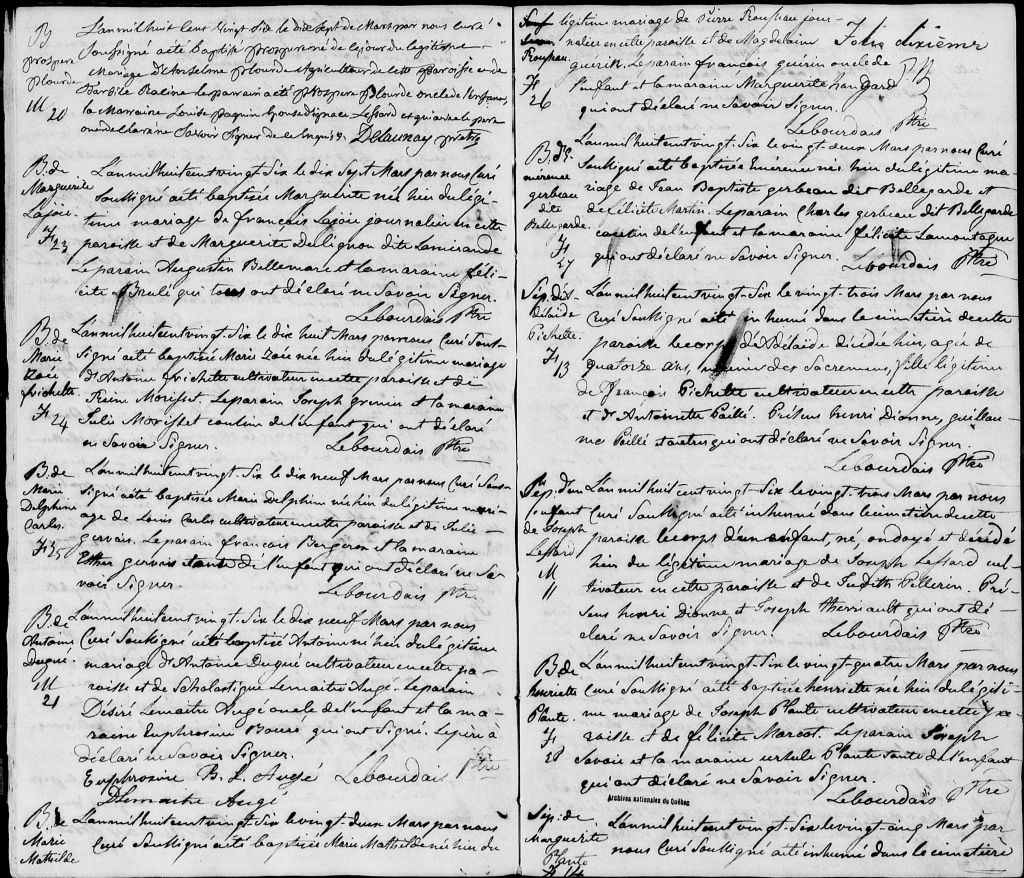 B
prospere
plourde
M
20
L'an mil huit cent vingt Six le dix Sept de Mars par nous curé
Soussigné a été Baptisé prospere né de ce jour du légitime
Mariage d'Anselme plourde Agriculteur de cette paroisse et de
Racine le parrain a été prospere plourde oncle de l'enfant
la Marraine Louise paquin
ont declaré ne Savoir Signer de ce enquis Delaunay ptre
B. de
Marguerite
Lajoie.
F
23
L'an mil huit cent vingt Six le dix Sept Mars par nous Curé
Soussigné a été baptisée Marguerite née hier du légi-
time mariage de François Lajoie journalier en cette
paroisse et de Marguerite Dulignon dite Lamirande
Le parain Augustin Bellemare et la maraine Féli-
cité Brulé qui tous ont déclaré ne Savoir Signer.
Lebourdais Ptre
B. de
Marie
Zoie
frichette.
F
24
L'an mil huit cent vingt-Six le dix huit Mars par nous Curé Sous-
Signé a été baptisée Marie Zoie née hier du légitime mariage
d'Antoine frichette cultivateur en cette paroisse et de
Reine Morisset. Le parain Joseph grenier et la maraine
Julie Morisset cousine de l'enfant qui ont déclaré
ne Savoir Signer. Lebourdais Ptre
B. de
Marie
Delphine
Carle.
F
25
L'an mil huit cent vingt-Six le dix neuf Mars par nous Curé Sous-
Signé a été baptisée Marie Delphine née hier du légitime mari-
age de Louis Carle cultivateur en cette paroisse et de Julie
gervais. Le parain françois Bergeron et la maraine
Esther gervais tante de l'enfant qui ont déclaré ne Sa-
voir Signer.
Lebourdais Ptre
B. de
Antoine
Dugué.
M
21
L'an mil huit cent vingt-Six le dix neuf Mars par nous
Curé Soussigné a été baptisé Antoine né hier du légitime
mariage d'Antoine Dugué cultivateur en cette pa-
roisse et de Scholastique Lemaitre Augé. Le parain
Désiré Lemaitre Augé oncle de l'enfant et la ma-
raine Euphrosine Bouré qui ont Signé. Le père a
déclaré ne Savoir Signer.
Euphrosine B. L. Augé Lebourdais Ptre
D Lemaitre Augé
B. de
Marie
Mathilde
L'an mil huit cent vingt-Six le vingt deux Mars par nous
Curé Soussigné a été baptisée Marie Mathilde née hier du
Rousseau.
F
26
légitime mariage de Pierre Rousseau jour-
nalier en cette paroisse et de Magdelaine
guerin. Le parain françois guerin oncle de
l'enfant et la maraine Marguerite
qui ont déclaré ne Savoir Signer.
Lebourdais Ptre
Folio dixième
B. d'E-
mérence
gerbeau
dite
Bellegarde.
F
27
L'an mil huit cent vingt-Six le vingt deux Mars par nous Curé
Soussigné a été baptisée Emérence née hier du légitime ma-
riage de Jean Baptiste gerbeau dit Bellegarde et
de félicité Martin. Le parain Charles gerbeau dit Bellegarde
cousin de l'enfant et la maraine félicité Lamontagne
qui ont déclaré ne Savoir Signer. Lebourdais Ptre
Sép. d'A-
délaide
Pichette.
F
13
L'an mil huit cent vingt-Six le vingt-trois Mars par nous
Curé Soussigné a été inhumé dans le cimetière de cette
paroisse le corps d'Adélaide décédée hier, agée de
quatorze ans, munie des Sacremens, fille légitime
de françois Pichette cultivateur en cette paroisse
et d'Antoinette Paillé. Présens henri Dionne, guillau-
me Paillé et autres qui ont déclaré ne Savoir Signer.
Lebourdais Ptre
Sép. d'un
enfant
de Joseph
Lessard
M
11
L'an mil huit cent vingt-Six le vingt-trois Mars par nous
Curé Soussigné a été inhumé dans le cimetière de cette
paroisse le corps d'un enfant, né, ondoyé et décédé
hier du légitime mariage de Joseph Lessard cul-
tivateur en cette paroisse et de Judith Pellerin. Pré-
sens henri Dionne et Joseph Therriault qui ont dé-
claré ne Savoir Signer. Lebourdais Ptre
B. de
henriette
Plante.
F
28
L'an mil huit cent vingt-Six le vingt-quatre Mars par nous
Curé Soussigné a été baptisée henriette née hier du légiti-
me mariage de Joseph Plante cultivateur en cette pa-
roisse et de félicité Marcot. Le parain Joseph
Savoie et la maraine ursule Plante tante de l'enfant
qui ont déclaré ne Savoir Signer.
Lebourdais Ptre
Archives nationales du Québec
Sép. de
Marguerite
Plante
F 14
L'an mil huit cent vingt-Six le vingt-cinq Mars par
nous Curé Soussigné a été inhumé dans le cimetière